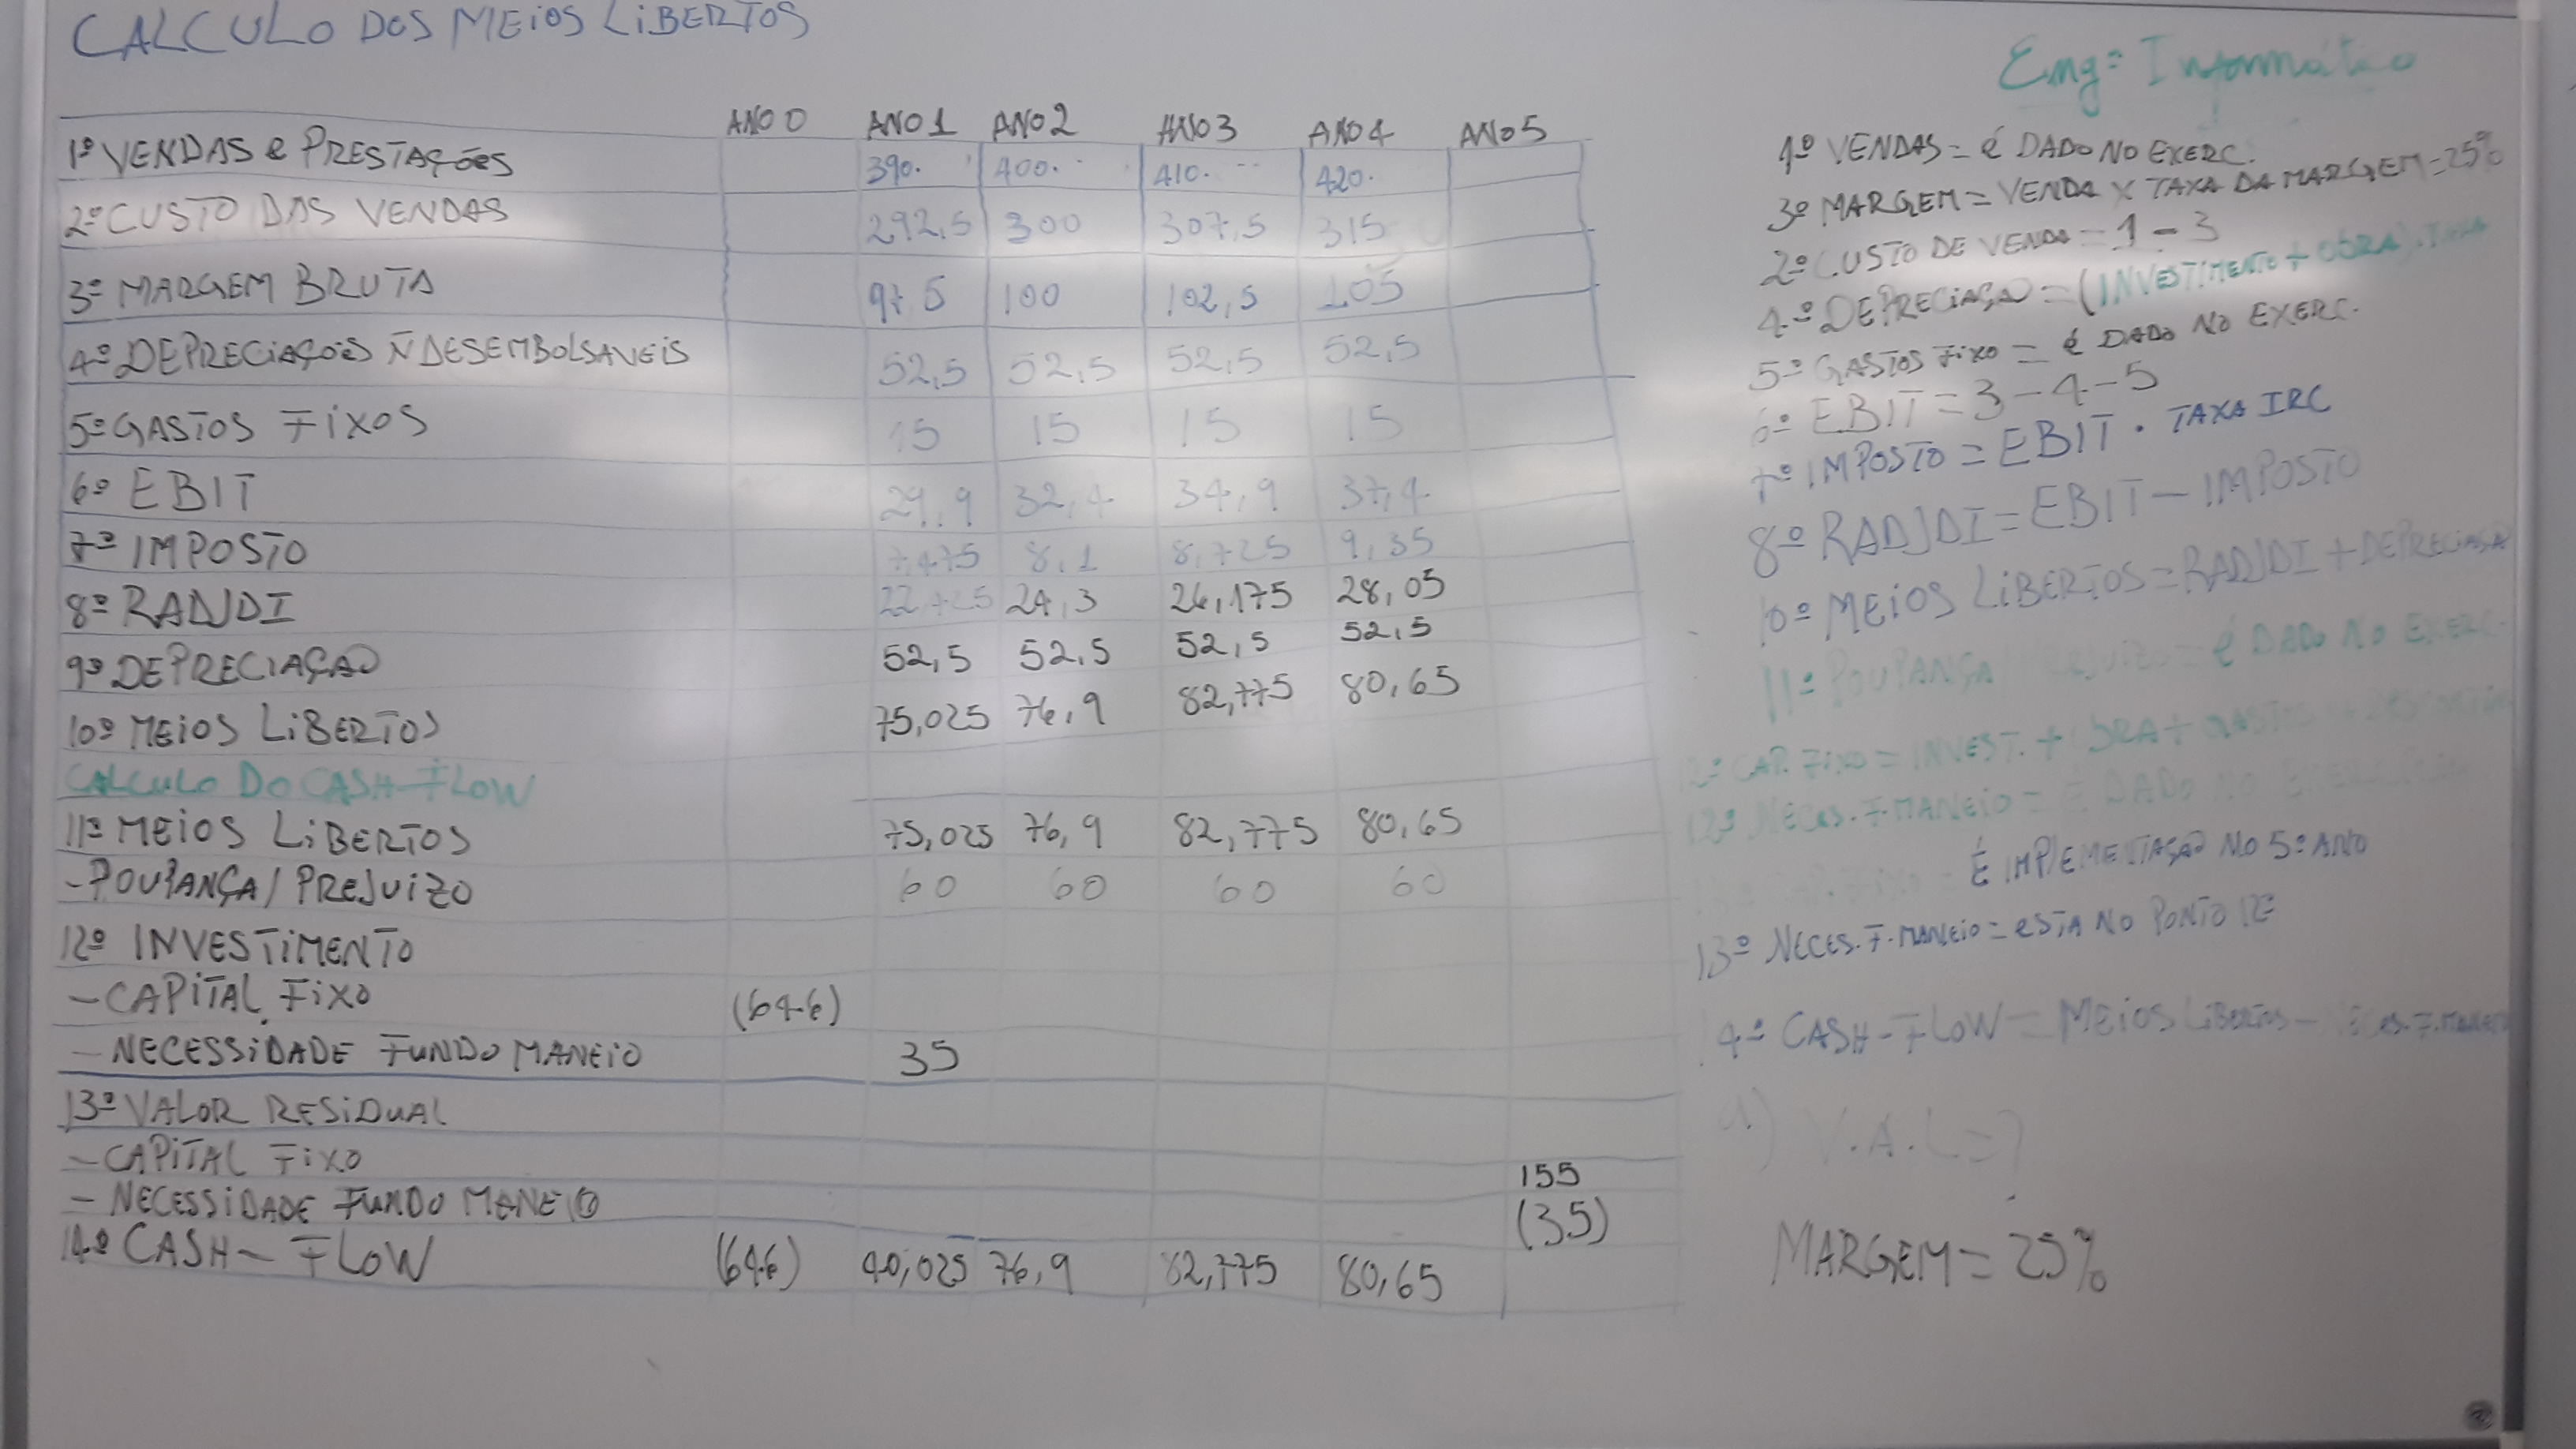 CALCULO DOS MEIOS LIBERTOS
ANO 0 ANO 1 ANO 2 ANO 3 ANO 4 ANO 5
1º VENDAS e PRESTAÇÕES 390. 400. 410. 420.
2º CUSTO DAS VENDAS 292,5 300 307,5 315
3º MARGEM BRUTA 97,5 100 102,5 105
4º DEPRECIAÇÕES Ñ DESEMBOLSAVEIS 52,5 52,5 52,5 52,5
5º GASTOS FIXOS 15 15 15 15
6º EBIT 29,9 32,4 34,9 37,4
7º IMPOSTO 7,475 8,1 8,725 9,35
8º RADJDI 22,425 24,3 26,175 28,05
9º DEPRECIAÇÃO 52,5 52,5 52,5 52,5
10º MEIOS LIBERTOS 75,025 76,9 82,775 80,65
CALCULO DO CASH-FLOW
11º MEIOS LIBERTOS 75,025 76,9 82,775 80,65
- POUPANÇA/PREJUIZO 60 60 60 60
12º INVESTIMENTO
- CAPITAL FIXO (646)
- NECESSIDADE FUNDO MANEIO 35
13º VALOR RESIDUAL
- CAPITAL FIXO 155
- NECESSIDADE FUNDO MANEIO (35)
14º CASH-FLOW (646) 40,025 76,9 82,775 80,65
Engª Informática
1º VENDAS = é DADO NO EXERC.
3º MARGEM = VENDA X TAXA DA MARGEM = 25%
2º CUSTO DE VENDA = 1 - 3
4º DEPRECIAÇÃO = (INVESTIMENTO + OBRA). TAXA
5º GASTOS FIXO = é DADO NO EXERC.
6º EBIT = 3 - 4 - 5
7º IMPOSTO = EBIT . TAXA IRC
8º RADJDI = EBIT - IMPOSTO
10º MEIOS LIBERTOS = RADJDI + DEPRECIAÇÃO
11º POUPANÇA = é DADO NO EXERC.
12º CAP. FIXO = INVEST. + OBRA +
12º NECES. F. MANEIO = É DADO NO
É IMPLEMENTAÇÃO NO 5º ANO
13º NECES. F. MANEIO = esTA NO PONTO 12º
14º CASH-FLOW = MEIOS LIBERTOS - NECES. F. MANEIO
a) V.A.L = ?
MARGEM = 25%